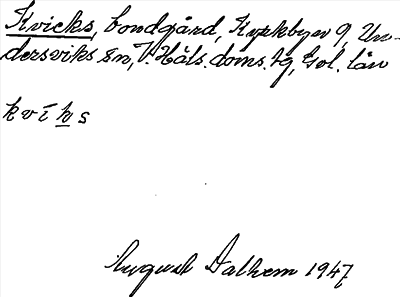 Kvicks, bondgård, Kyrkbyn 9, Un-
dersviks sn, V. Häls. doms. tg, Gol. län
k v i k s
August Dalhem 1947